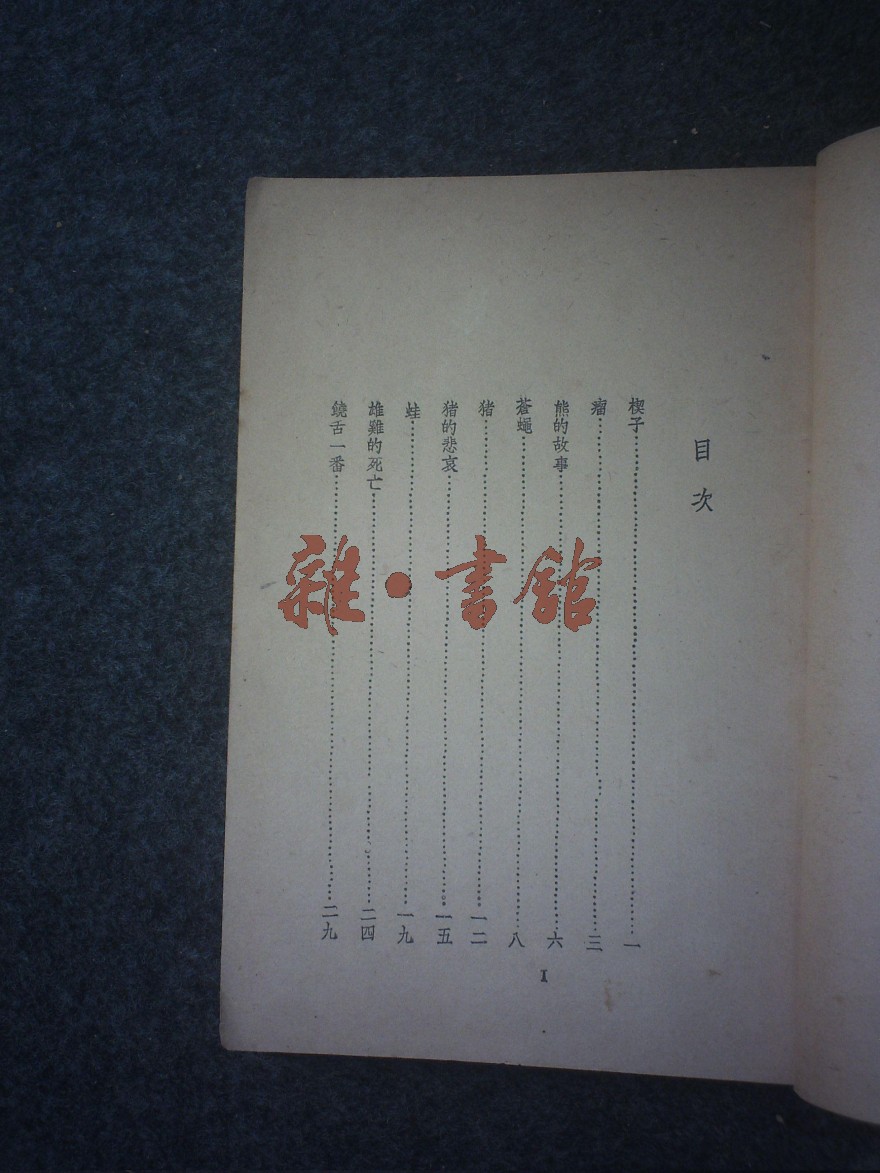 目次
楔子 一
瘤 三
熊的故事 六
蒼蠅 八
猪 一二
猪的悲哀 一五
蛙 一九
雄雞的死亡 二四
饒舌一番 二九
I
雜·書館